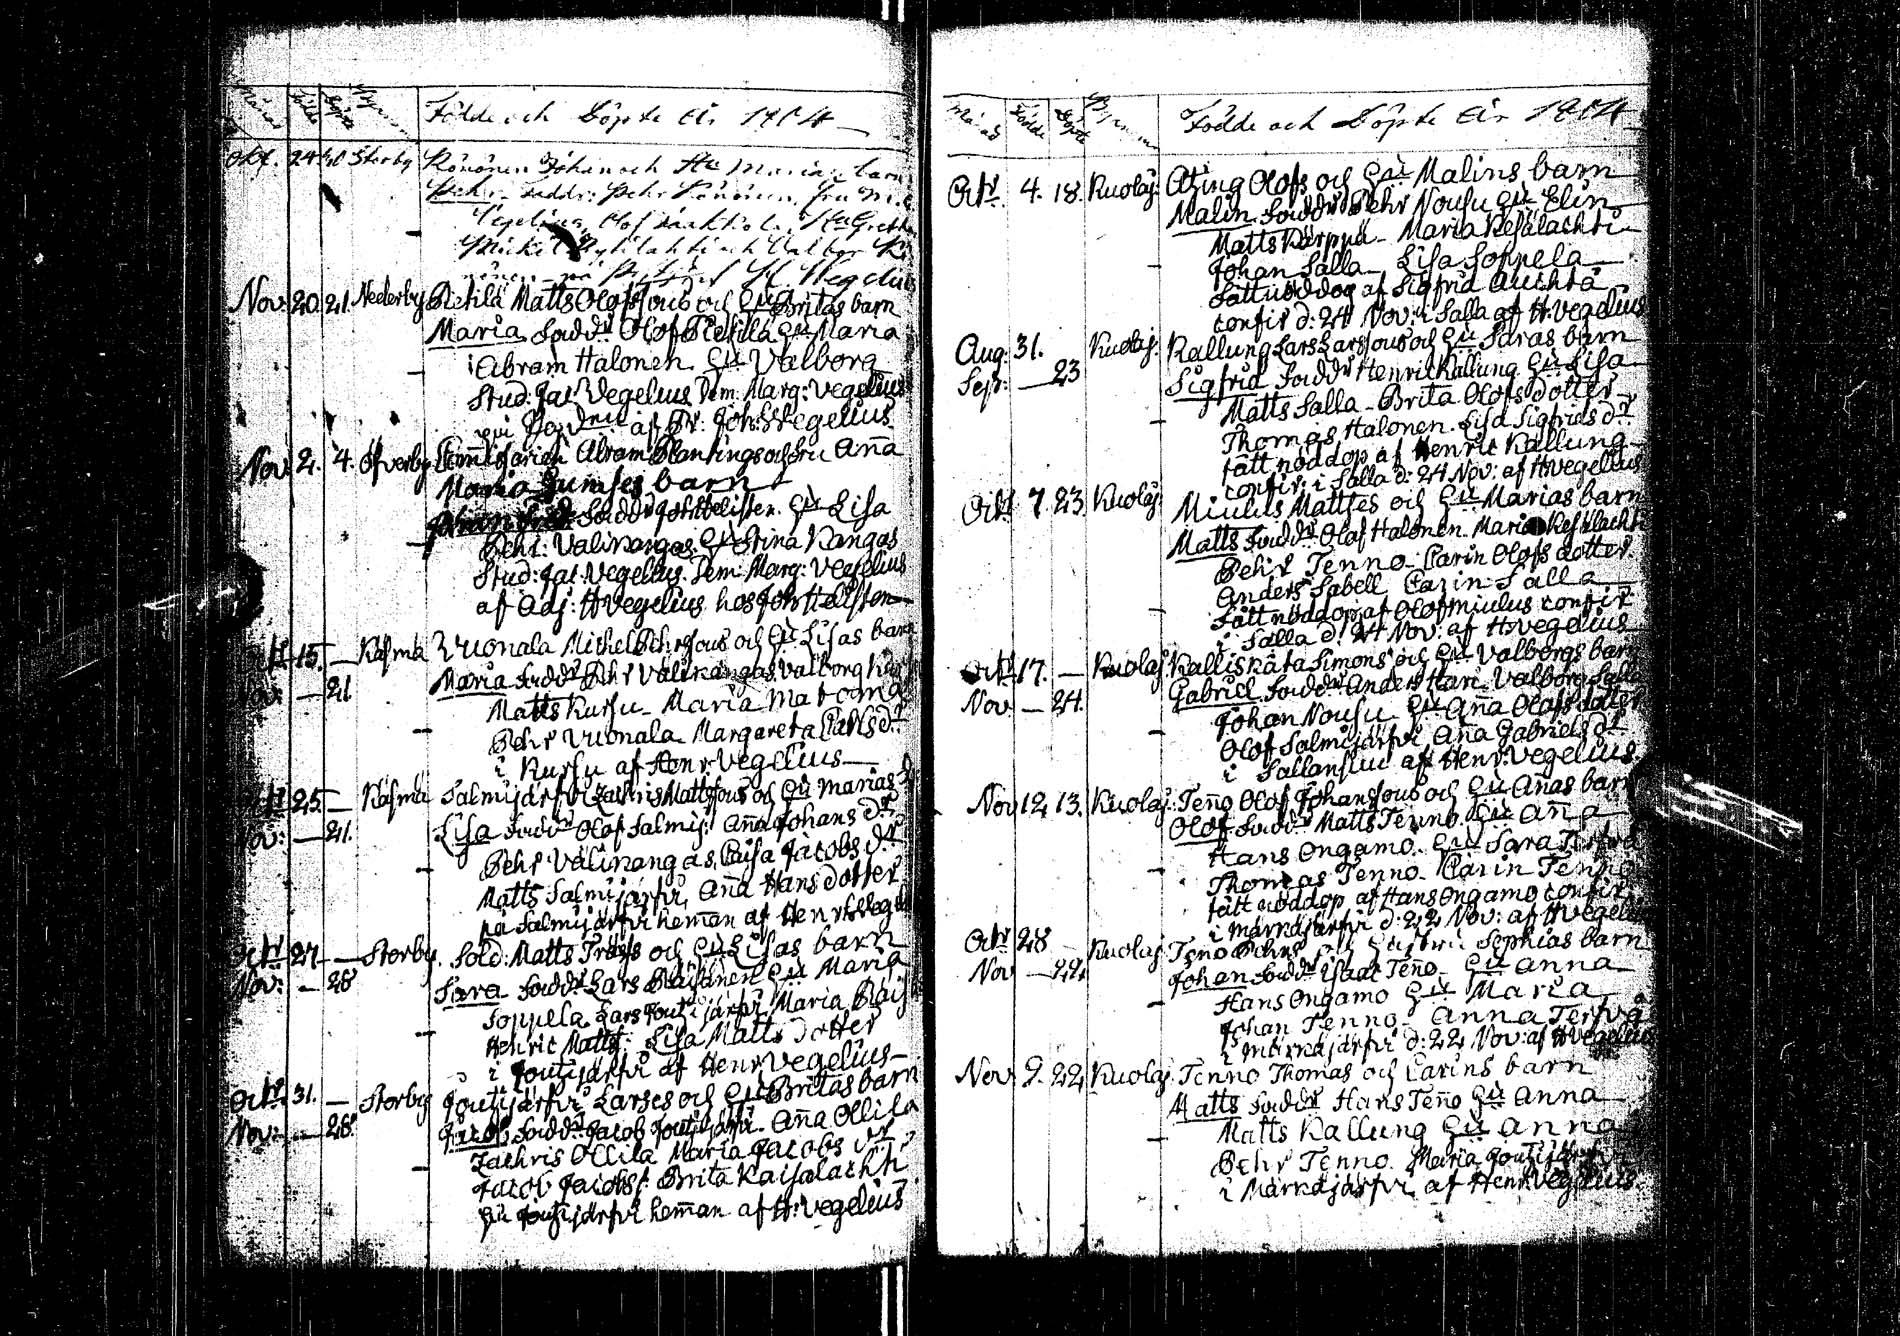 Månad Födde Döpte Byarna Födde och Döpte År 1804
Oct. 24 30 Storby Könönen Johan och Hu Marias barn
Pehr. faddr: Pehr Könönen, fru M.
Vegelius, Olof
Michel och Valbor
nönen på af H Vegelius
Nov: 20. 21. Nederby Pietilä Matts Olofssons och Hu Britas barn
Maria Faddr Olof Pietilä Hu Maria
Abram Halonen. Hu Valborg
Stud: Jac: Vegelius Dem: Marg: Vegelius
af Pr. Joh: Vegelius
Nov 2. 4. Öfverby Commissarien Abram Plantings och fru Aña
Maria barn
Johan Fredr. Faddr Joh: Hellsten. Hu Lisa
Pehr: Välikangas. Hu Stina Kangas
Stud: Jac: Vegelius. Dem: Marg: Vegelius
af Adj: H Vegelius hos Joh: Hellsten
Octr 15. — Käsmä Vuonala Michel Pehrssons och Hu Lisas barn
Nov: — 21 Maria Faddr Pehr Välikangas, Valborg
Matts Kursu — Maria Matcoma
Pehr Vuonala Margareta Larsdr
i Kursu af Henr Vegelius—
Octr 25. — Käsmä Salmijärfvi Zachris Mattssons och Hu Marias
Nov: — 21. Lisa Faddr Olof Salmij: Aña Johans dr
Pehr Välikangas, Caisa Jacobs dr
Matts Salmijärfvi, Aña Hans dotter
på Salmijärfvi heman af Henr Vegel
Octr 27. — Storby. Sold: Matts Träsks och Hu Lisas barn
Nov: — 28 Sara Faddr Lars Räisänen Hu Maria
Soppela. Lars Joutijärfvi Maria Räis
Henric Matts: Lisa Matts Dotter
i Joutijärfvi af Henr Vegelius—
Octr 31. — Storby Joutijärfvi Larses och Hu Britas barn
Nov: — 28. Jacob. Faddr: Jacob Joutijärfvi. Aña Ollila
Zachris Ollila Maria Jacobs dr
Jacob Jacobs: Brita Kaisalachti
på Joutijärfvi heman af H: Vegelius
Månad Födde Döpte Byarna Födde och Döpte År 1804
Octr. 4. 18. Kuolaj: Atzing Olofs och Hu Malins barn
Malin. Faddr Pehr Nousu Hu Elin
Matts Kärppä — Maria Kesälachti
Johan Salla — Lisa Soppela
fått nöddop af Sigfrid Auchtä
confir d: 24 Nov: i Salla af H: Vegelius
Aug: 31. Kuolaj: Kallung Lars Larssons och Hu Saras barn
Sep: — 23 Sigfrid Faddr Henric Kallung Hu Lisa
Matts Salla — Brita Olofs dotter
Thomas Halonen. Lisa Sigfrids dr
fått nöddop af Henric Kallung
confir: i Salla d: 24 Nov: af H Vegelius
Octr 7. 23. Kuolaj: Miulus Mattses och Hu Marias barn
Matts Faddr Olof Halonen. Maria Kesälachti
Pehr Tenno. Carin Olofs dotter
Anders Sabell Carin Salla
fått nöddop af Olof Miulus confir
i Salla d: 24 Nov: af H: Vegelius
Octr 17. — Kuolaj: Kalliskäta Simons och Hu Valborgs barn
Nov — 24. Gabriel Faddr Anders Hari. Valborg Salla
Johan Nousu Hu Aña Olofs dotter
Olof Salmijärfvi Aña Gabriels dr
i Sallansuu af Henr: Vegelius.
Nov 12. 13. Kuolaj: Teño Olof Johanssons och Hu Añas barn
Olof Faddr Matts Tenno. Hu Aña
Hans Ongamo. Hu Sara Terfvä
Thomas Tenno. Carin Tenno
fått nöddop af Hans Ongamo confir:
i Märkäjärfvi d: 22 Nov: af H Vegelius
Octr 28 — Kuolaj: Teño Pehrs och Hustru Sophias barn
Nov — 22. Johan Faddr Isaac Teño — Hu Anna
Hans Ongamo Hu Maria
Johan Tenno. Anna Terfvä
i Märkäjärfvi d: 22 Nov: af H Vegelius
Nov: 9. 22. Kuolaj: Tenno Thomas och Carins barn
Matts Faddr Hans Teño Hu Anna
Matts Kallung Hu Anna
Pehr Tenno. Maria Joutijärfvi
i Märkäjärfvi af Henr. Vegelius.